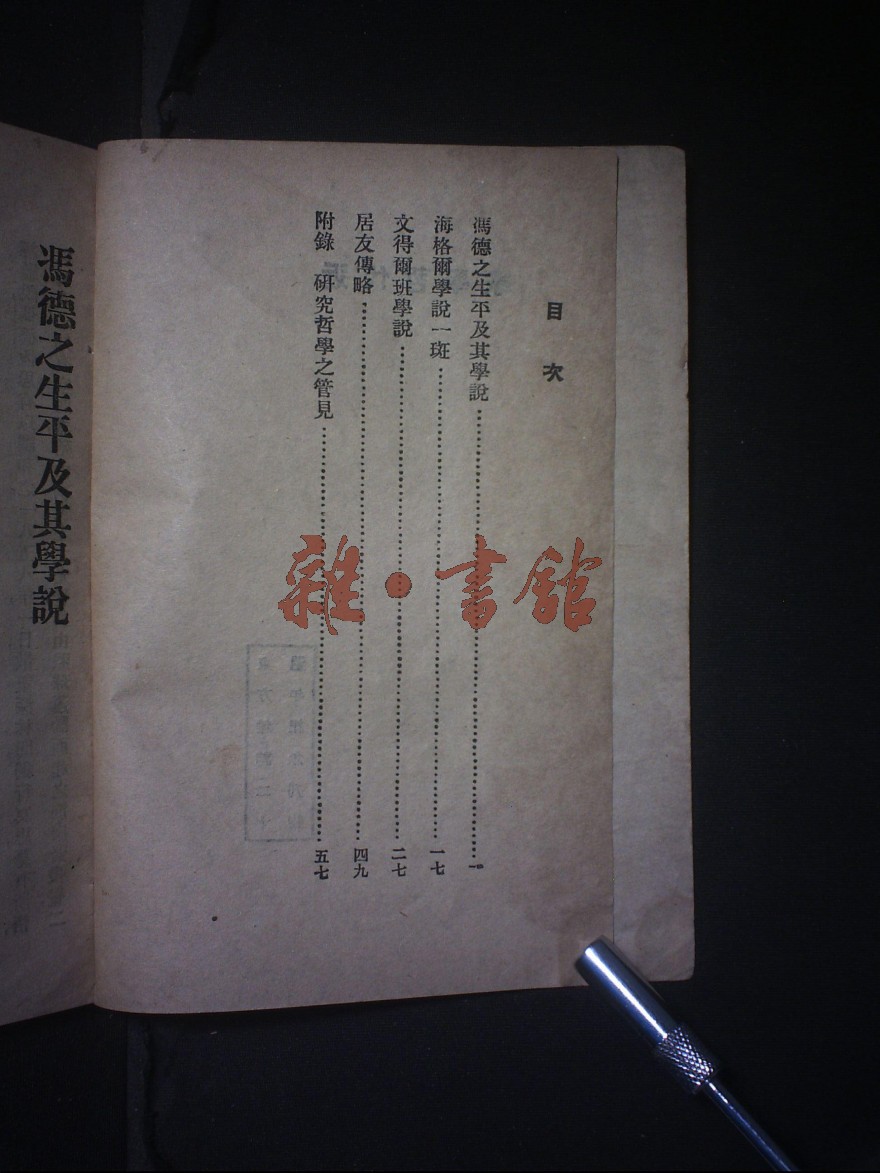 目次
馮德之生平及其學說⋯⋯一
海格爾學說一斑⋯⋯一七
文得爾班學說⋯⋯二七
居友傳略⋯⋯四九
附錄　研究哲學之管見⋯⋯五七
馮德之生平及其學說
雜・書館